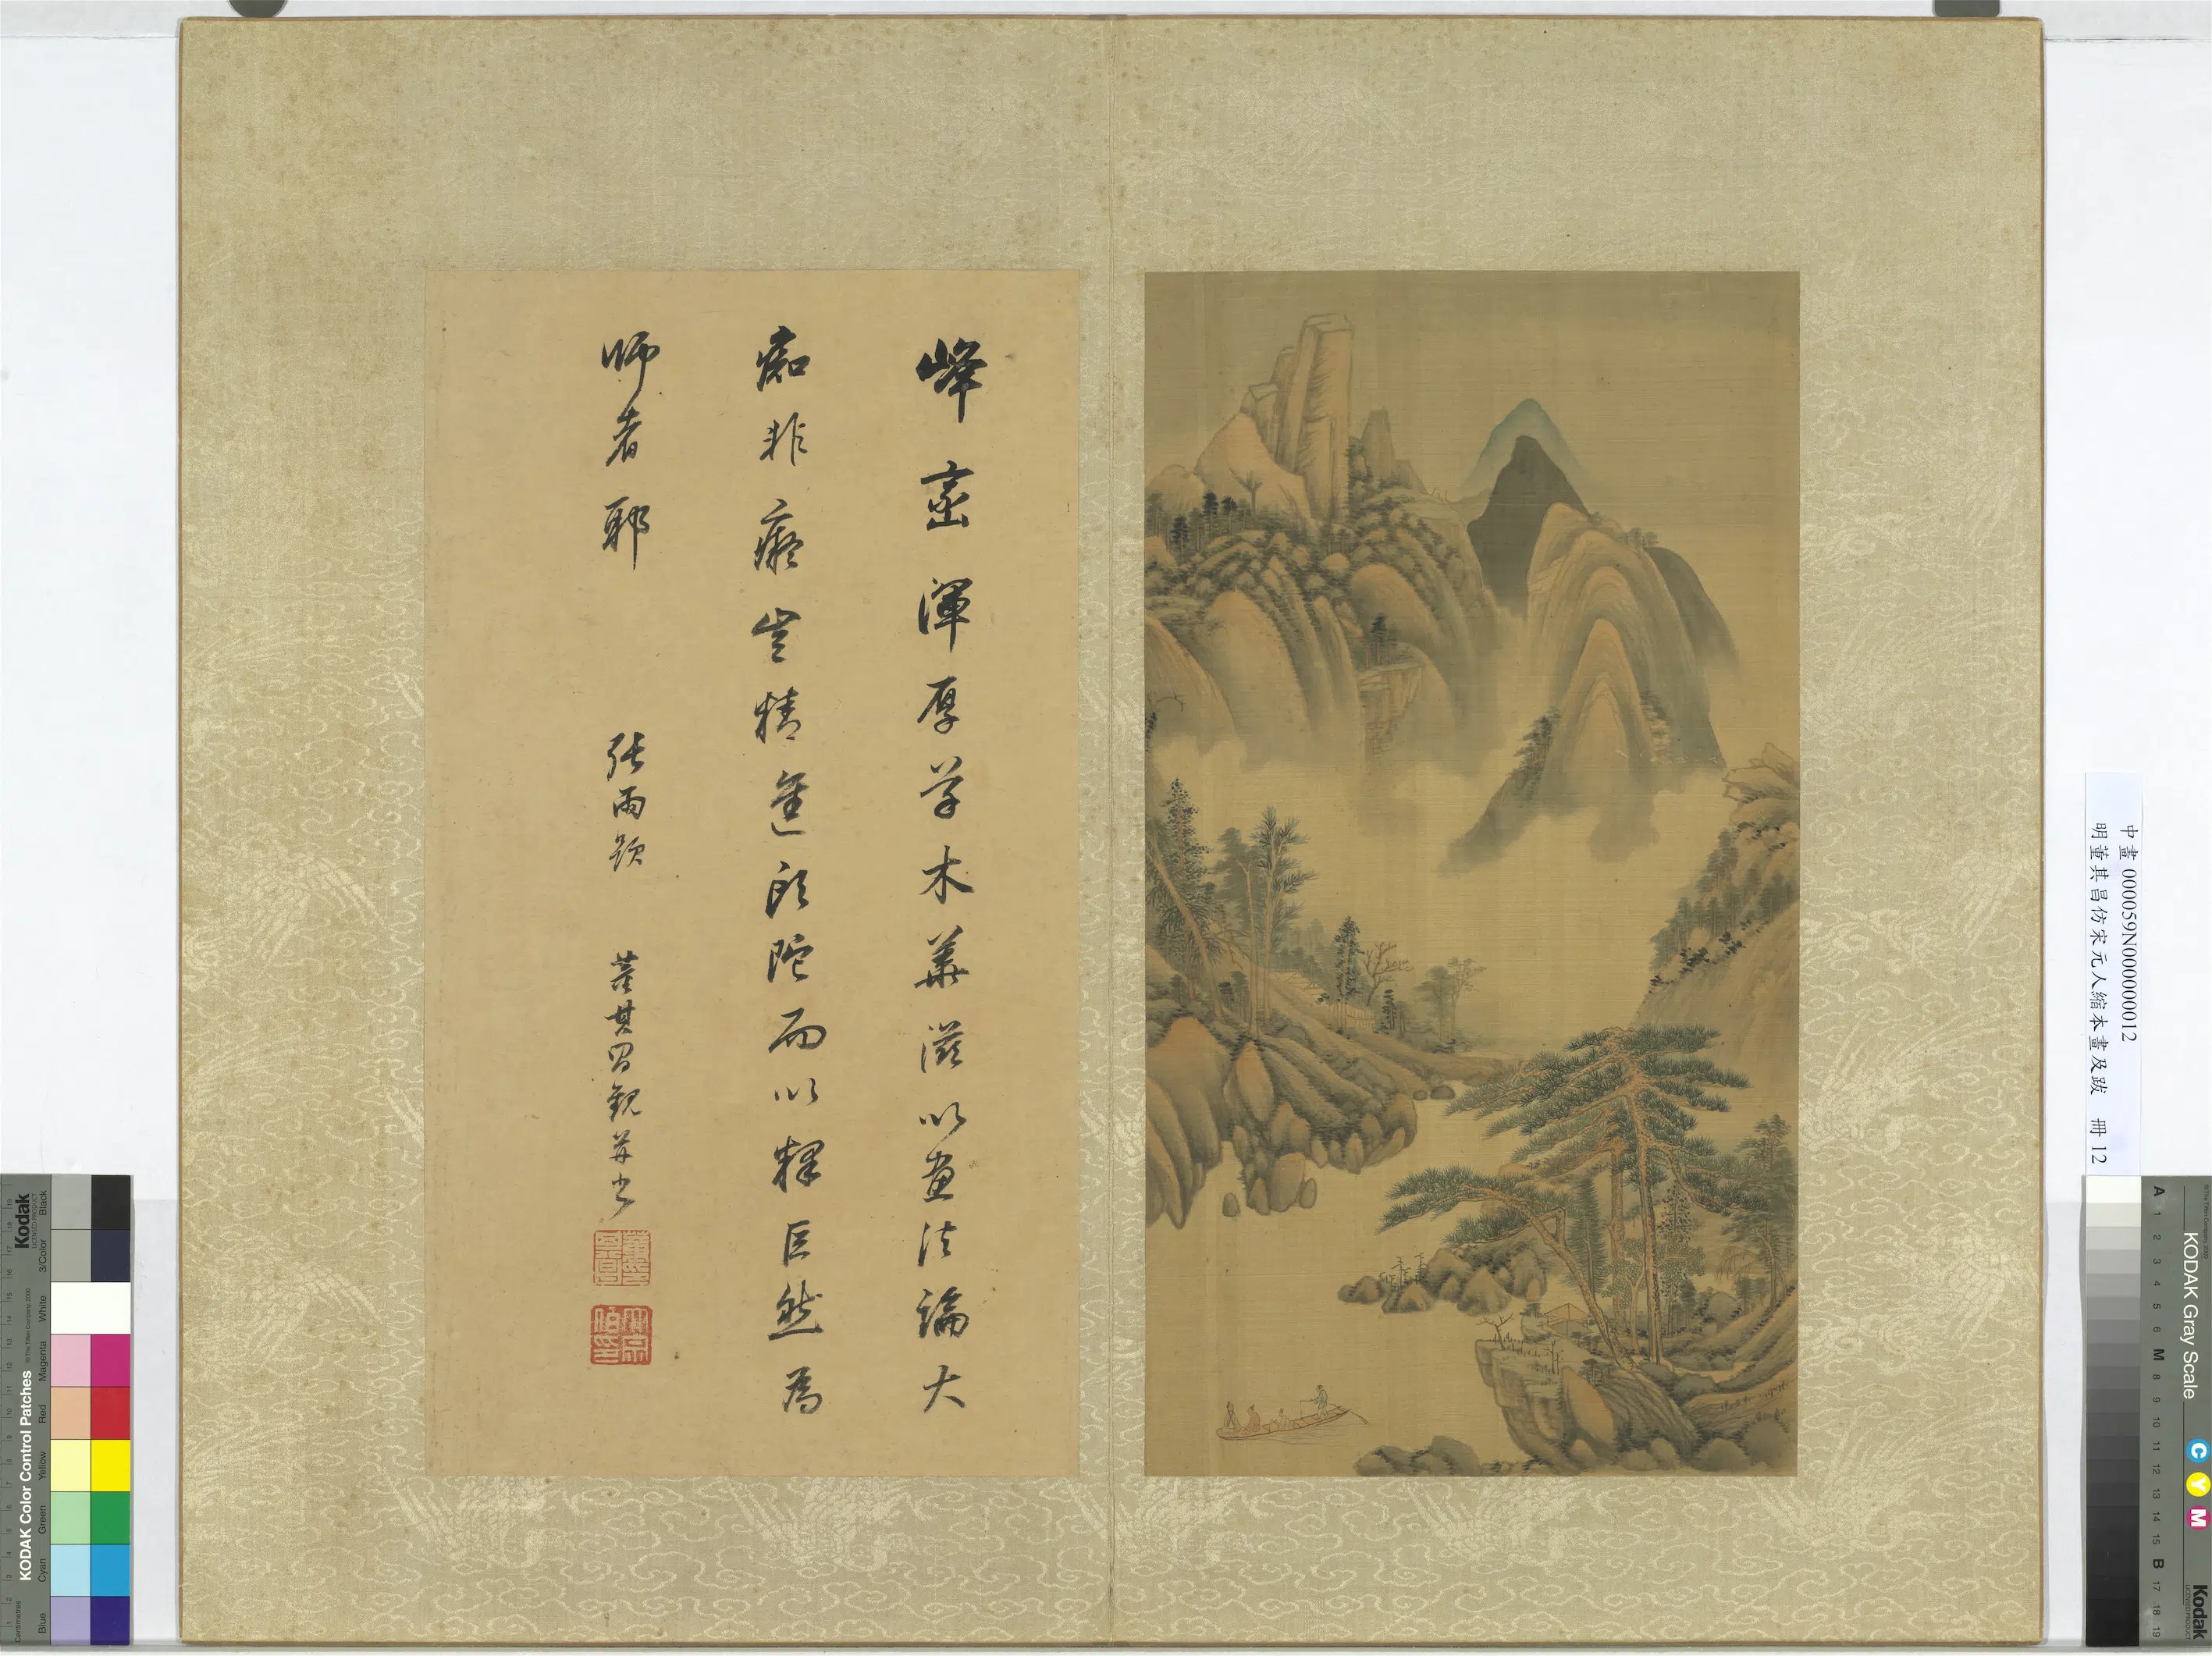 峰巒渾厚草木華滋以畫法論大
痴非癡豈精進頭陀而以釋巨然為
師者耶
張雨題
董其昌觀并書
中畫 000059N000000012
明董其昌仿宋元人縮本畫及跋 冊 12
KODAK Color Control Patches
Kodak
Blue
Cyan
Green
Yellow
Red
Magenta
White
3/Color
Black
Centimetres
KODAK Gray Scale
C
Y
M
Kodak
A 1 2 3 4 5 6 M 8 9 10 11 12 13 14 15 B 17 18 19